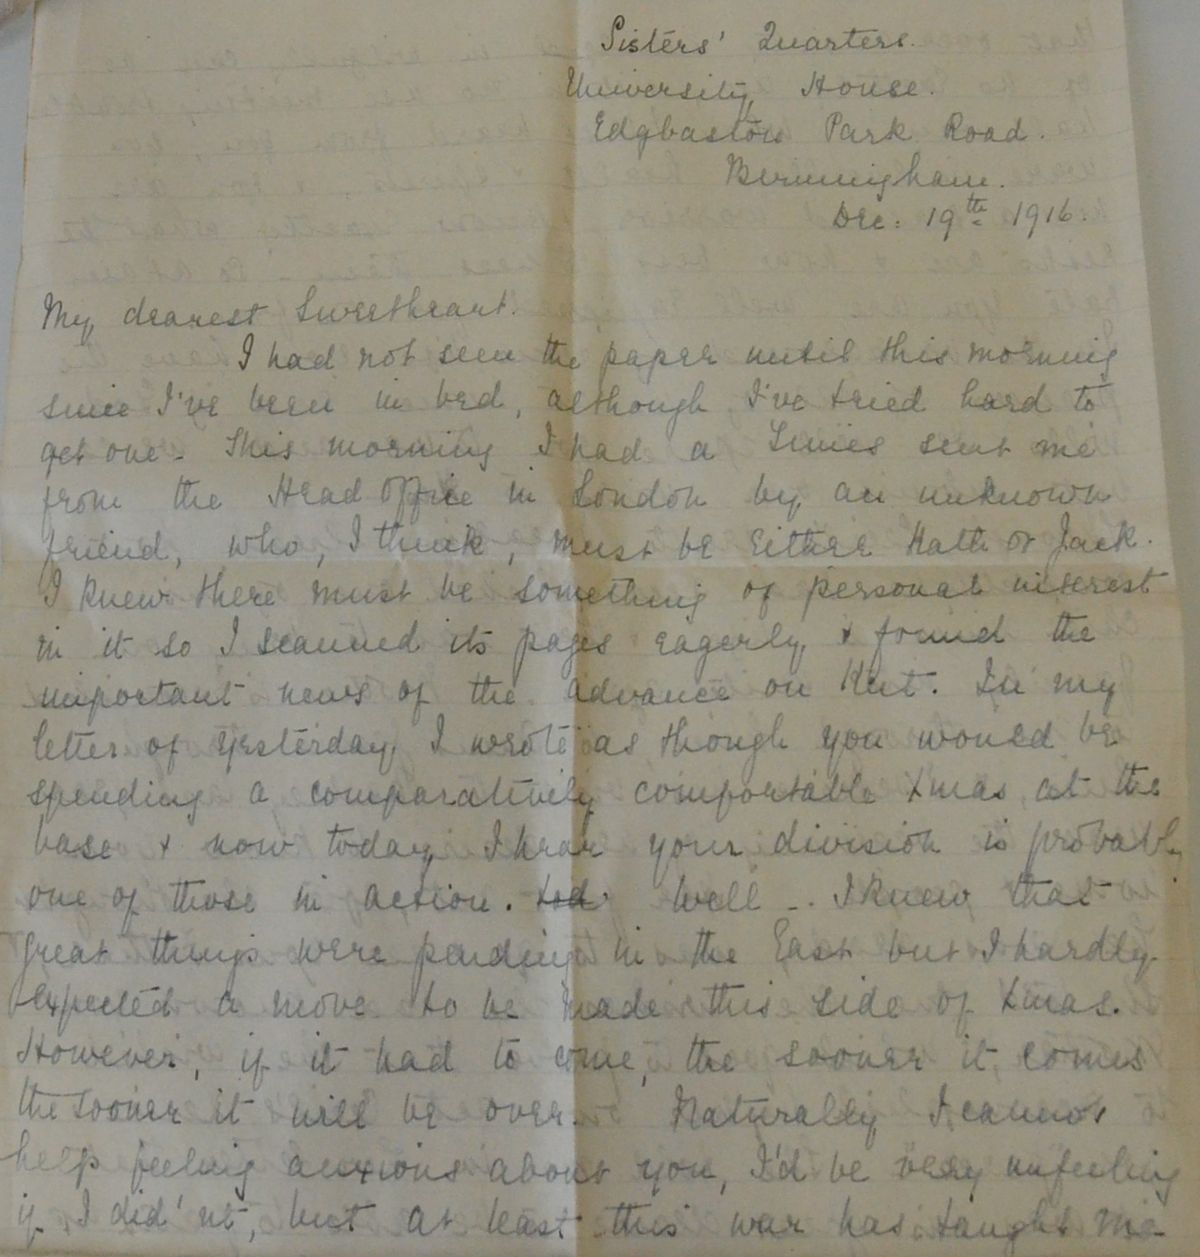 Sisters' Quarters.
University House.
Edgbaston Park Road.
Birmingham.
Dec. 19th 1916.
My dearest Sweetheart.
I had not seen the paper until this morning
since I've been in bed, although I've tried hard to
get one. This morning I had a Times sent me
from the Head Office in London by an unknown
friend, who, I think, must be either Kath or Jack.
I knew there must be something of personal interest
in it so I scanned its pages eagerly & found the
important news of the advance on Kut. In my
letter of yesterday I wrote as though you would be
spending a comparatively comfortable Xmas at the
base & now today I hear your division is probably
one of those in action. Well - I knew that
great things were pending in the East but I hardly
expected a move to be made this side of Xmas.
However, if it had to come, the sooner it comes
the sooner it will be over. Naturally I cannot
help feeling anxious about you, I'd be very unfeeling
if I did'nt, but at least this war has taught me